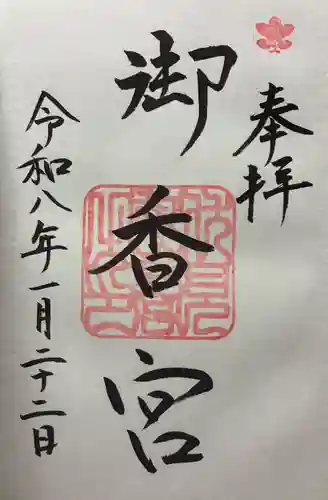 奉拝
御香宮
令和八年一月二十二日